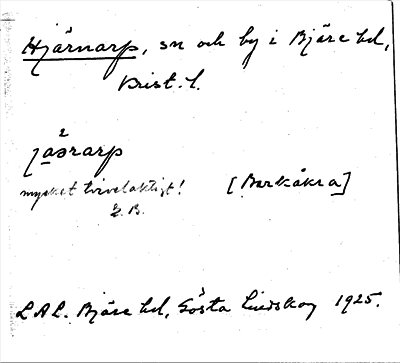 Hjärnarp, sn och by i Bjäre hd,
Krist. l.
2
jäsrarp
mycket tvivelaktigt! [Barkåkra]
E.B.
LAL. Bjäre hd, Gösta Lindskog 1925.